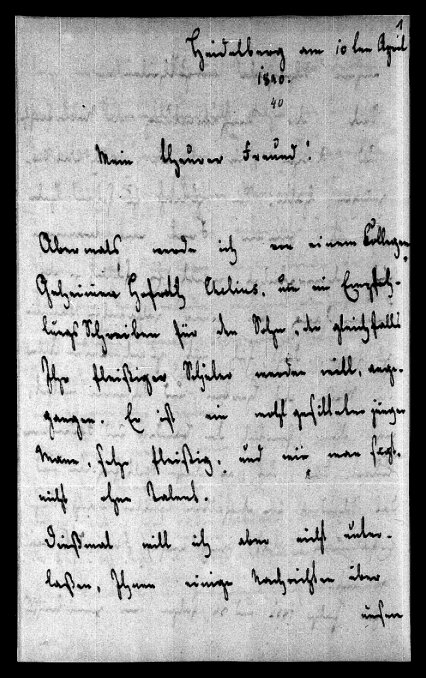 1
Heidelberg am 10ten April
1840.
40
Mein theurer Freund!
Abermals werde ich von einem Collegen,
Geheimen Hofrath um ein Empfeh-
lungs Schreiben für den Sohn, der gleichfalls
Ihr fleißiger Schüler werden will, ange-
gangen. Er ist ein wohlgesitteter junger
Mann, sehr fleißig, und wie man sagt,
nicht ohne Talent.
Dießmal will ich aber nicht unter-
laßen, Ihnen einige Nachrichten über